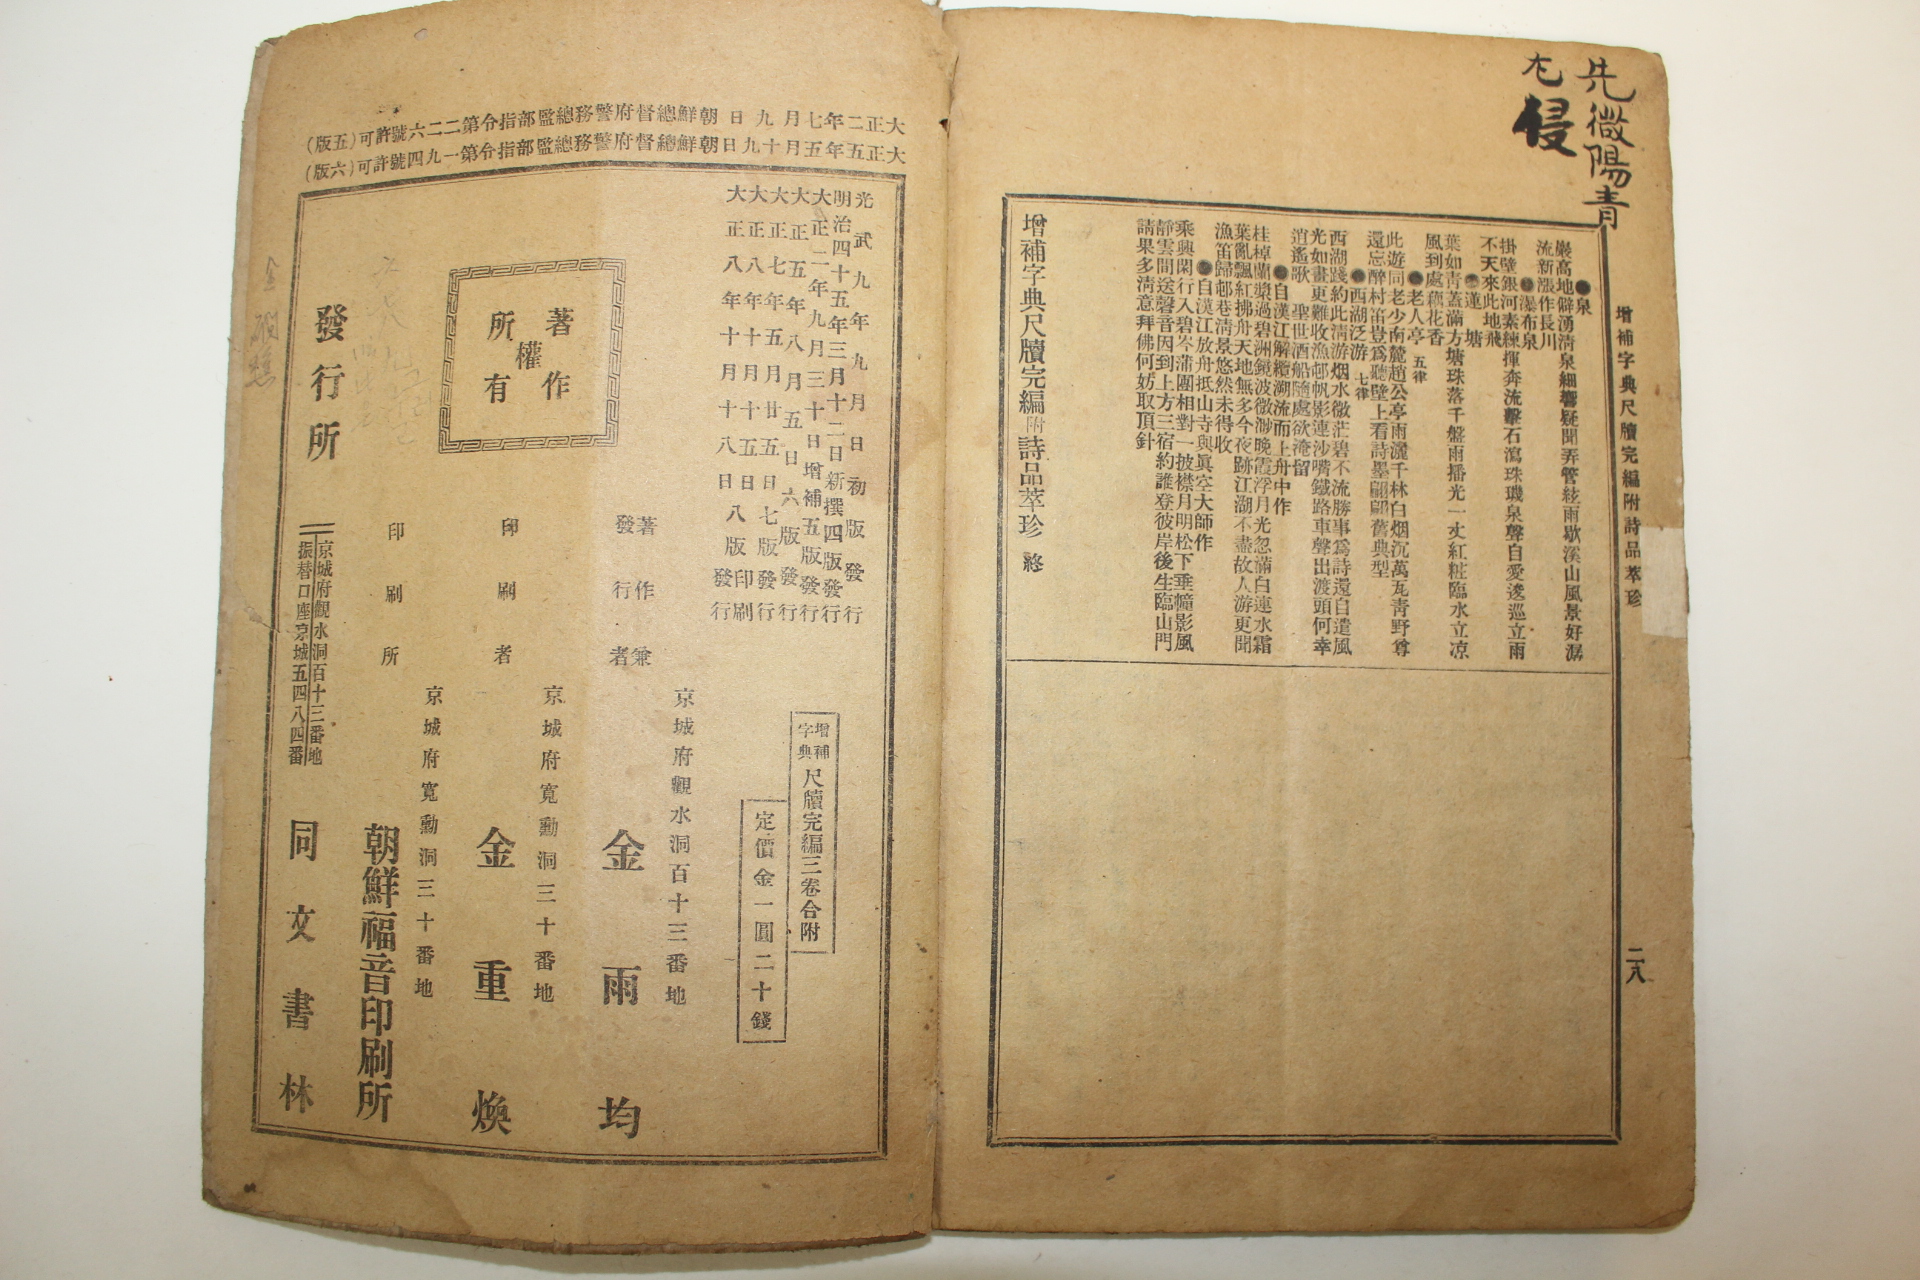 先微陽青
侵
增補字典尺牘完編附詩品萃珍
二八
●泉
巖高地僻湧淸泉細響疑聞弄管絃雨歇溪山風景好潺
流新漲作長川
●瀑布泉
掛壁銀河素練揮奔流擊石瀉珠璣泉聲自愛逡巡立雨
不天來此地飛
●蓮塘
葉如靑蓋滿方塘珠落千盤雨播光一丈紅粧臨水立凉
風到處藕花香
●老人亭 五律
此遊同老少南麓趙公亭雨灑千林白烟沉萬瓦靑野尊
還忘醉村笛豈爲聽壁上看詩墨翩翩舊典型
●西湖泛游 七律
西湖踐約此淸游烟水微茫碧不流勝事爲詩還自遣風
光如畫更難收漁邨帆影連沙嘴鐵路車聲出渡頭何幸
逍遙歌聖世酒船隨處欲淹留
●自漢江解纜溯流而上舟中作
桂棹蘭槳過碧洲鏡波微渺晚霞浮月光忽滿白連水霜
葉亂飄紅拂舟天地無多今夜跡江湖不盡故人游更聞
漁笛歸邨巷淸景悠然未得收
●自漢江放舟抵山寺與眞空大師作
乘興閑行入碧岑蒲團相對一披襟月明松下垂幢影風
靜雲間送磬音因到上方三宿約誰登彼岸後生臨山門
請果多淸意拜佛何妨取頂針
增補字典尺牘完編附詩品萃珍 終
大正二年七月九日朝鮮總督府警務總監部指令第二二六號許可(五版)
大正五年五月十九日朝鮮總督府警務總監部指令第一九四號許可(六版)
光武九年九月日初版發行
明治四十五年三月十二日新撰四版發行
大正二年九月三十日增補五版發行
大正五年八月五日六版發行
大正七年五月廿五日七版發行
大正八年十月十五日八版印刷
大正八年十月十八日發行
著作
權
所有
增補字典 尺牘完編三卷合附
定價金一圓二十錢
京城府觀水洞百十三番地
著作兼
發行者 金雨均
京城府寬勳洞三十番地
印刷者 金重煥
京城府寬勳洞三十番地
印刷所 朝鮮福音印刷所
發行所
京城府觀水洞百十三番地
振替口座京城五四八四番
同文書林